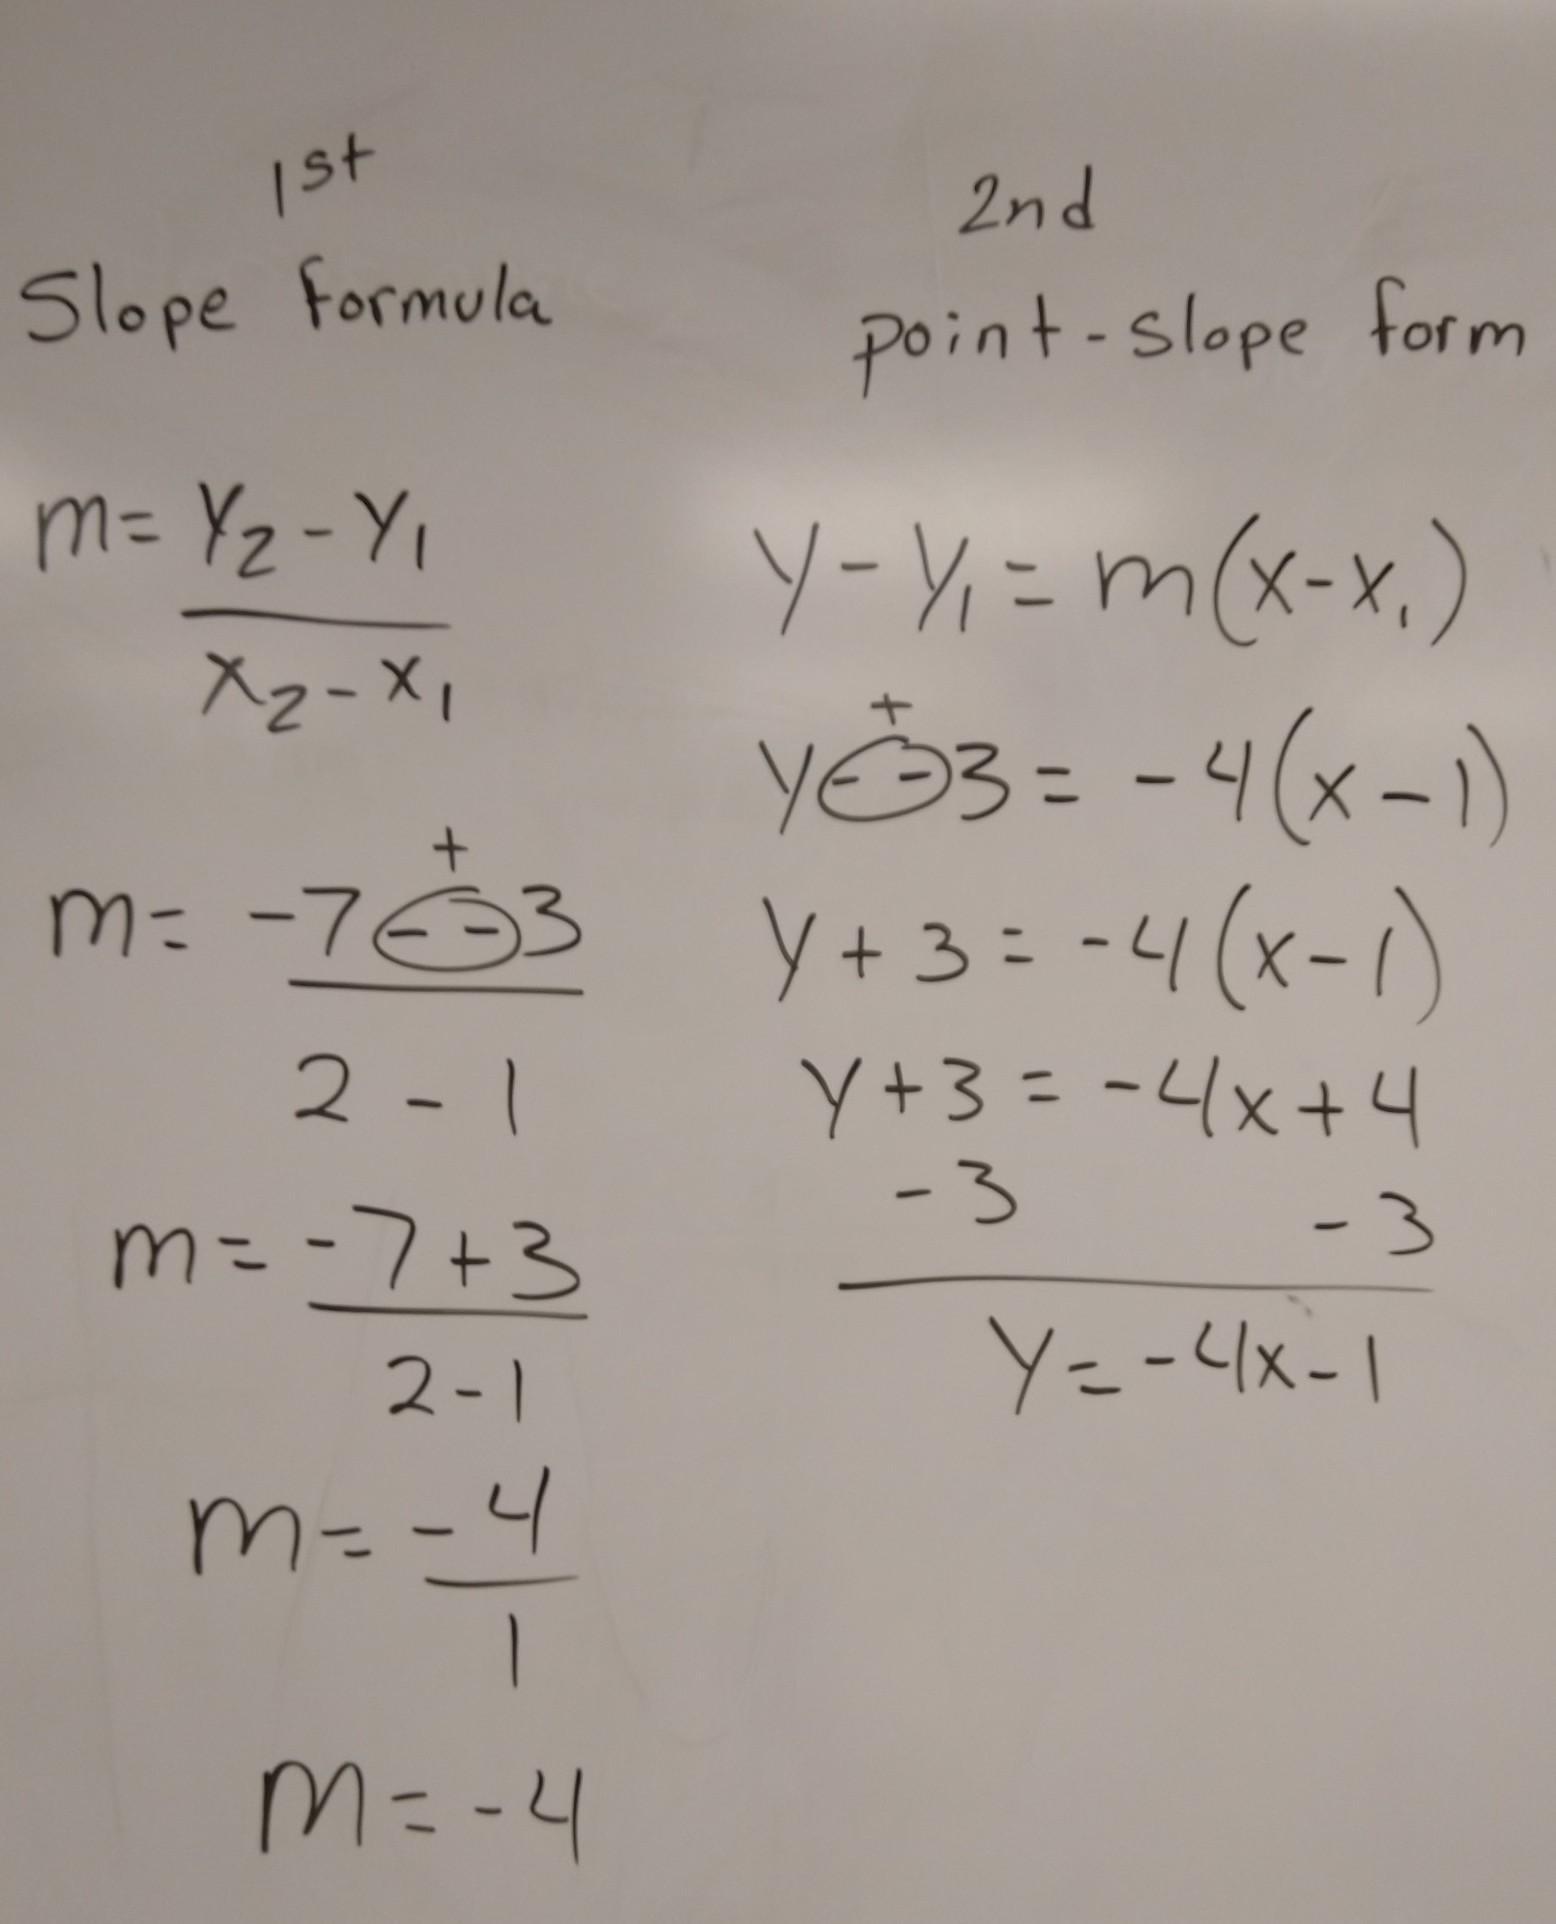 1st
Slope formula
m = y₂ - y₁
x₂ - x₁
+
m = -7 - -3
2 - 1
m = -7 + 3
2 - 1
m = -4
1
m = -4
2nd
point-slope form
y - y₁ = m(x - x₁)
+
y - -3 = -4(x - 1)
y + 3 = -4(x - 1)
y + 3 = -4x + 4
-3 -3
y = -4x - 1